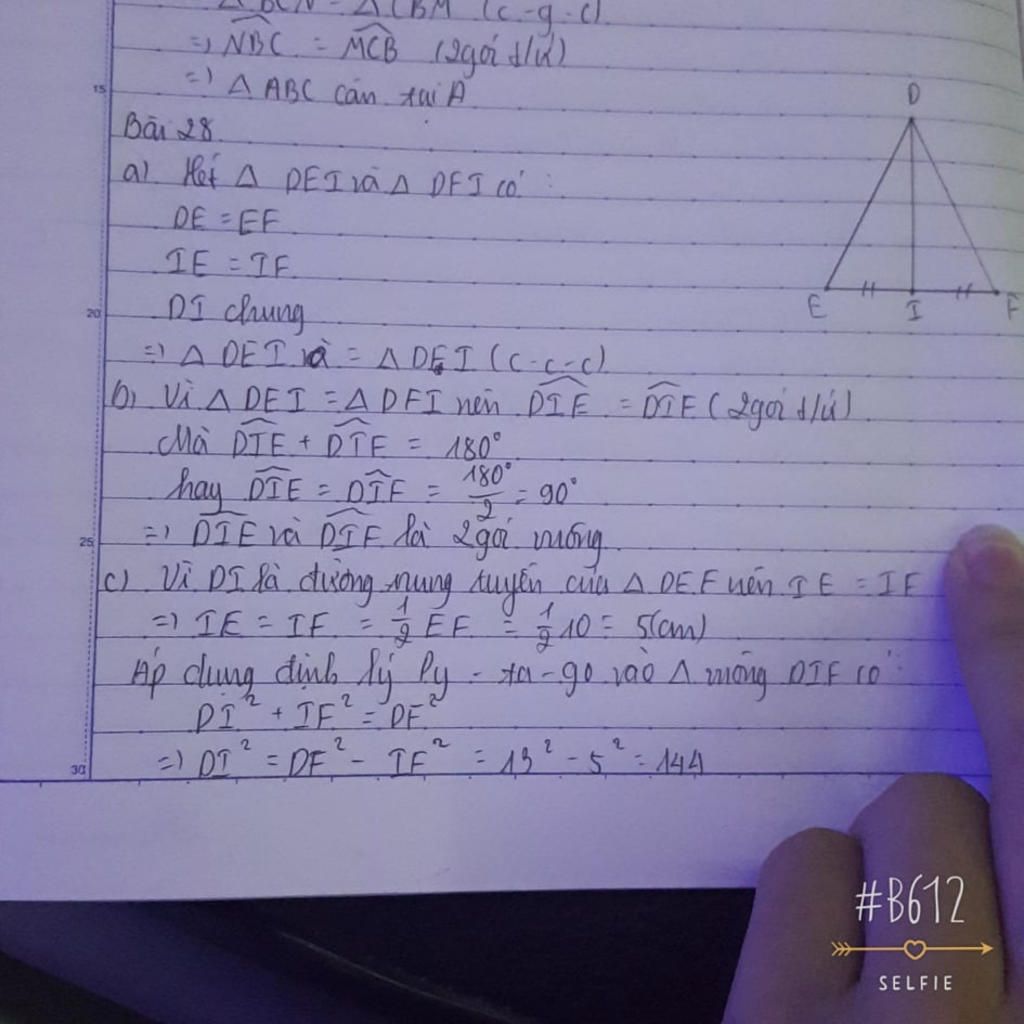 Δ BCN = Δ CBM (c-g-c)
=) NBC = MCB (2 gói t/ứ)
15
=) Δ ABC cân tại A
Bài 28
a) Xét Δ DEI và Δ DFI có:
DE = EF
IE = IF
20
DI chung
=) Δ DEI và = Δ DFI (c-c-c)
b) Vì Δ DEI = Δ DFI nên DIE = DIF (2 gói t/ứ)
Mà DIE + DIF = 180°
hay DIE = DIF = 180°/2 = 90°
25
=) DIE và DIF là 2 gói vuông
c) Vì DI là đường trung tuyến của Δ DEF nên IE = IF
=) IE = IF = 1/2 EF = 1/2 10 = 5(cm)
Áp dụng định lý Py-ta-go vào Δ vuông DIF có:
DI² + IF² = DF²
30
=) DI² = DF² - IF² = 13² - 5² = 144
D
E
I
F
#B612
SELFIE